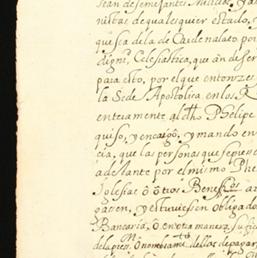 sean de semejantes
nistas de qualesquier estado, 
que sea de la de Cardenalato por
digni. eclesiastica, que an de ser
para esto, por el que entonzes
la Sede Apostolica en los R
enteramente al dho Phelipe
quiso, y encargó, y mando en
cia, que las personas se pusie
adelante por el mismo Phe
Iglesias ô otros Beneficos
garen, y estuviesen obligado
Bancaria, O en otra manera suficie
de la pres. O nombram.to dellos de pagar,